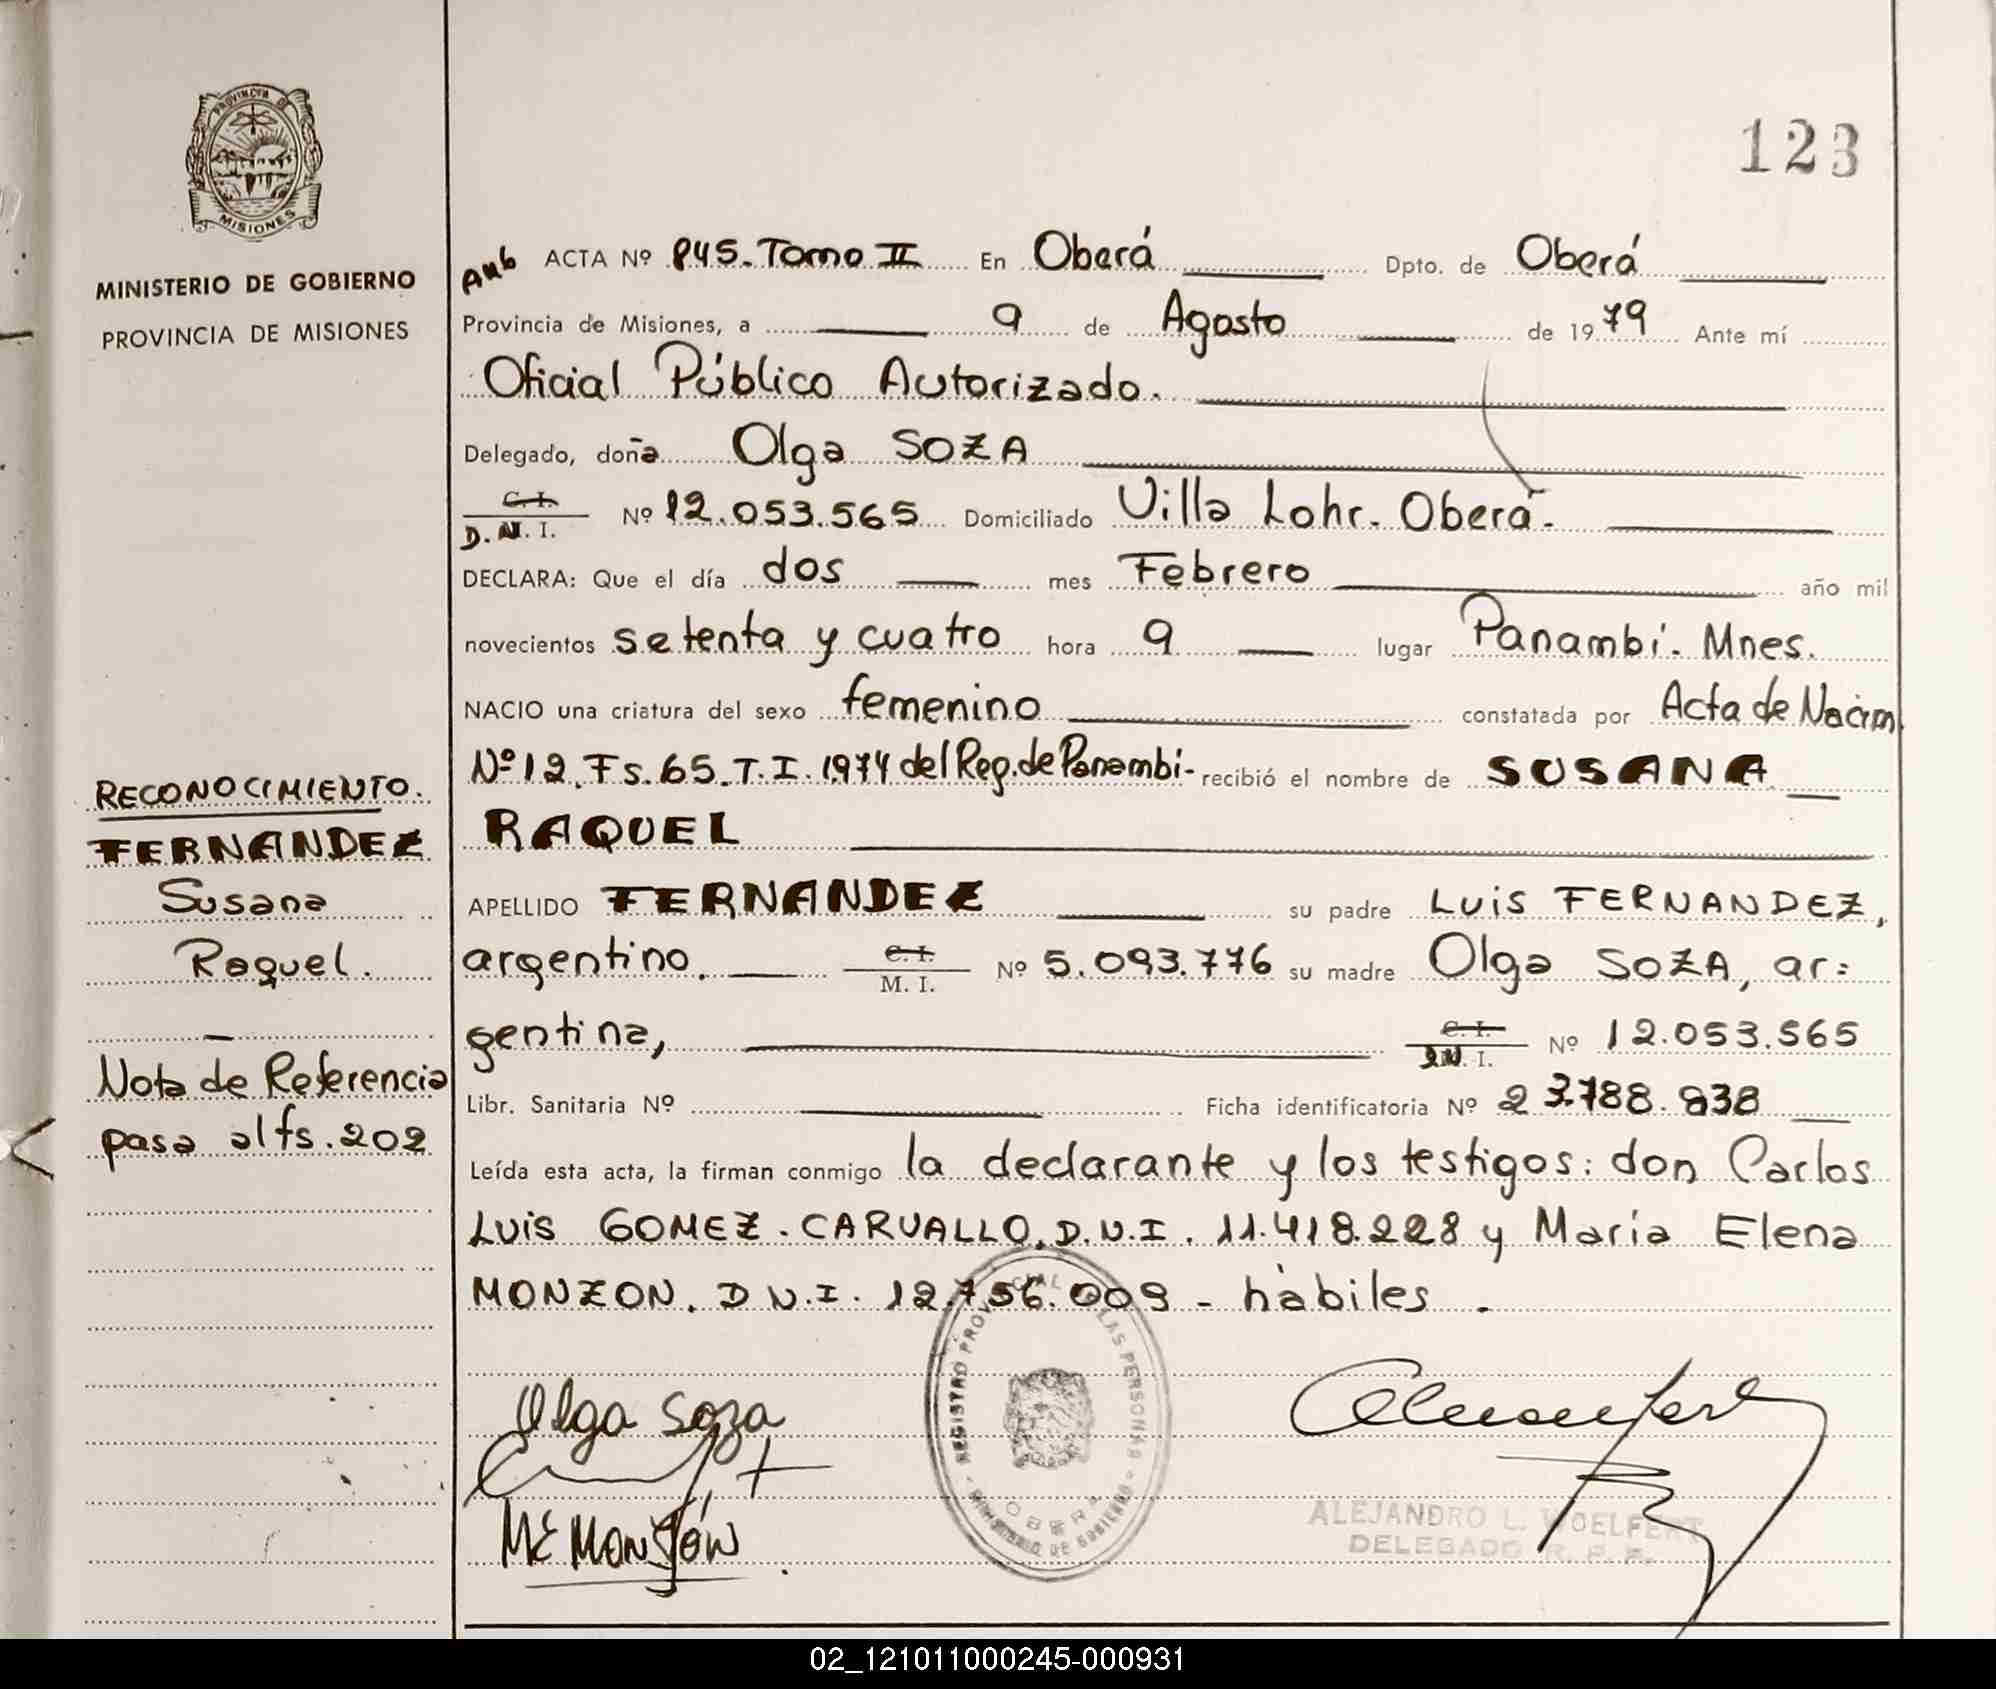 PROVINCIA DE
MISIONES
MINISTERIO DE GOBIERNO
PROVINCIA DE MISIONES
RECONOCIMIENTO.
FERNANDEZ
Susana
Raquel.
Nota de Referencia
pasa al fs. 202
123
ACTA Nº 845. Tomo II En Oberá Dpto. de Oberá
Provincia de Misiones, a 9 de Agosto de 1979 Ante mí
Oficial Público Autorizado.
Delegado, doña Olga SOZA
C. I.
D.N.I. Nº 12.053.565 Domiciliado Villa Lohr. Oberá.
DECLARA: Que el día dos mes Febrero año mil
novecientos setenta y cuatro hora 9 lugar Panambí. Mnes.
NACIO una criatura del sexo femenino constatada por Acta de Nacim
Nº 12. Fs. 65. T. I. 1974 del Reg. de Panambí- recibió el nombre de SUSANA
RAQUEL
APELLIDO FERNANDEZ su padre Luis FERNANDEZ,
argentino. C. I.
M. I. Nº 5.093.776 su madre Olga SOZA, ar=
gentina, C. I.
D.N.I. Nº 12.053.565
Libr. Sanitaria Nº Ficha identificatoria Nº 23.788.838
Leída esta acta, la firman conmigo la declarante y los testigos: don Carlos
Luis GOMEZ. CARVALLO. D.N.I. 11.418.228 y María Elena
MONZON. D N.I. 12.756.009 - hábiles.
Olga Soza
ME MONZÓN
REGISTRO PROVINCIAL DE LAS PERSONAS
OBERA
MINISTERIO DE GOBIERNO
ALEJANDRO L. WOELFERT
DELEGADO R. P. P.
02_121011000245-000931